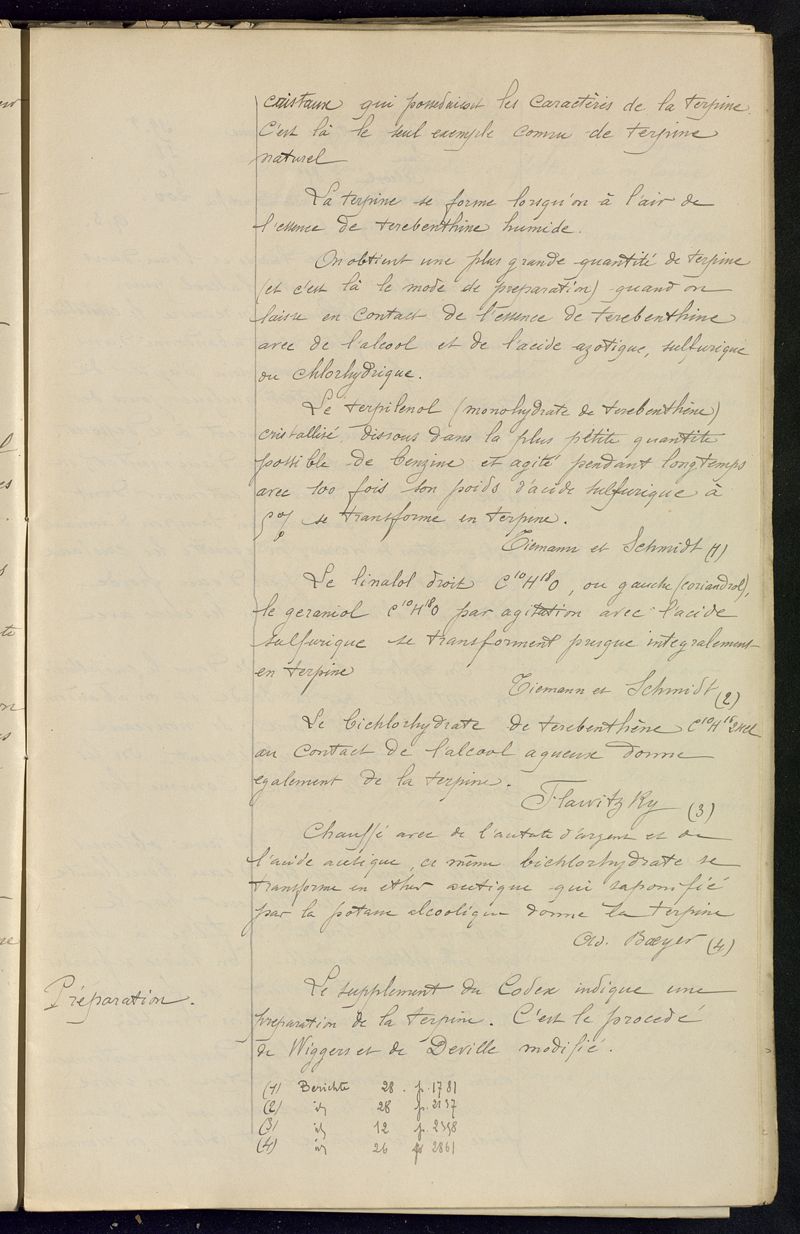 cristaux qui possedaient les caractères de la terpine.
C'est là le seul exemple connu de terpine
naturel
La terpine se forme lorsqu'on à l'air de
l'essence de terebenthine humide.
On obtient une plus grande quantité de terpine
(et c'est là le mode de preparation) quand on
laisse en contact de l'essence de terebenthine
avec de l'alcool et de l'acide azotique, sulfurique
ou chlorhydrique.
Le terpilenol (monohydrate de terebenthène)
cristallisé, dissous dans la plus petite quantité
possible de benzine et agité pendant longtemps
avec 100 fois son poids d'acide sulfurique à
5 % se transforme en terpine.
Tiemann et Schmidt (1)
Le linalol droit C¹⁰H¹⁸O, ou gauche (coriandrol),
le geraniol C¹⁰H¹⁸O par agitation avec l'acide
sulfurique se transforment presque integralement
en terpine
Tiemann et Schmidt (2)
Le bichlorhydrate de terebenthène C¹⁰H¹⁶2HCl
au contact de l'alcool aqueux donne
egalement de la terpine.
Flawitzky (3)
Chauffé avec de l'acetate d'argent et de
l'acide acétique, ce même bichlorhydrate se
transforme en ether acetique qui saponifié
par la potasse alcoolique donne la terpine
Ad. Bæyer (4)
Préparation.
Le supplement du Codex indique une
preparation de la terpine. C'est le procedé
de Wiggers et de Deville modifié.
(1) Berichte 28. p. 1781
(2) id 28 p. 2137
(3) id 12 p. 2358
(4) id 26 p. 2861